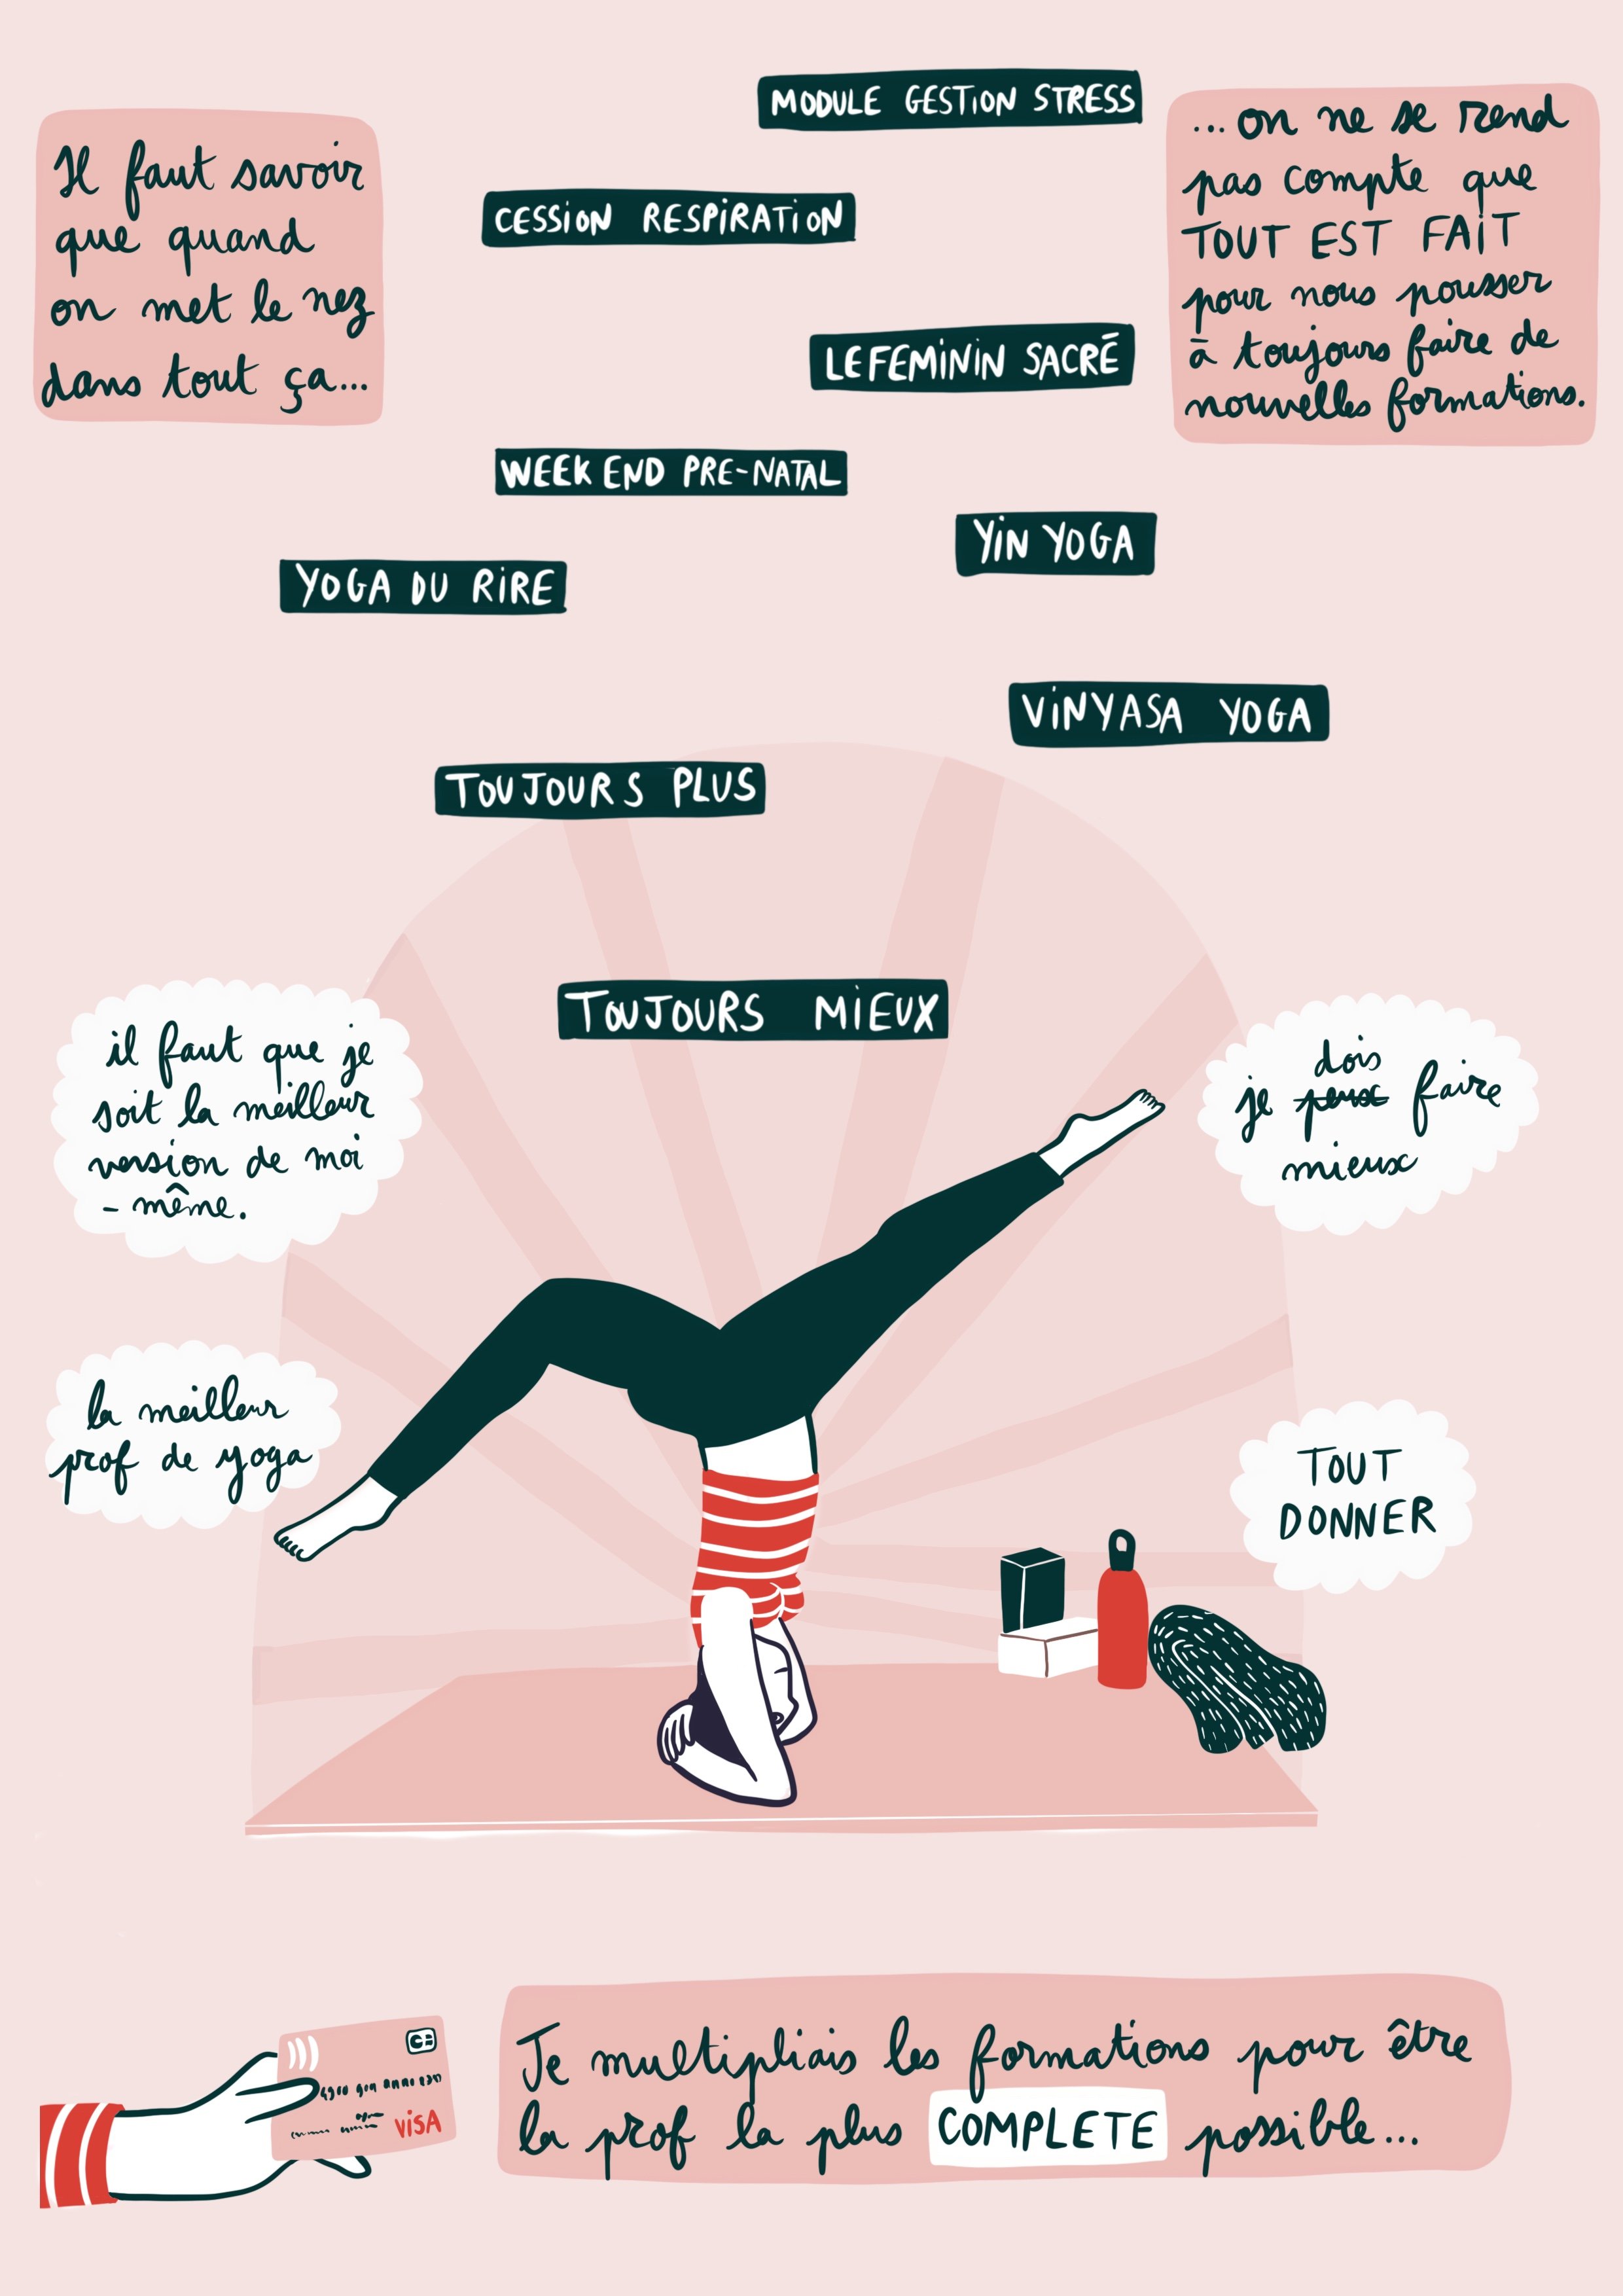 Il faut savoir
que quand
on met le nez
dans tout ça...
MODULE GESTION STRESS
CESSION RESPIRATION
LE FEMININ SACRÉ
WEEK END PRE-NATAL
YIN YOGA
YOGA DU RIRE
VINYASA YOGA
TOUJOURS PLUS
TOUJOURS MIEUX
...on ne se rend
pas compte que
TOUT EST FAIT
pour nous pousser
à toujours faire de
nouvelles formations.
il faut que je
soit la meilleur
version de moi
-même.
dois
je peux faire
mieux
la meilleur
prof de yoga
TOUT
DONNER
CB
VISA
Je multipliais les formations pour être
la prof la plus COMPLETE possible...